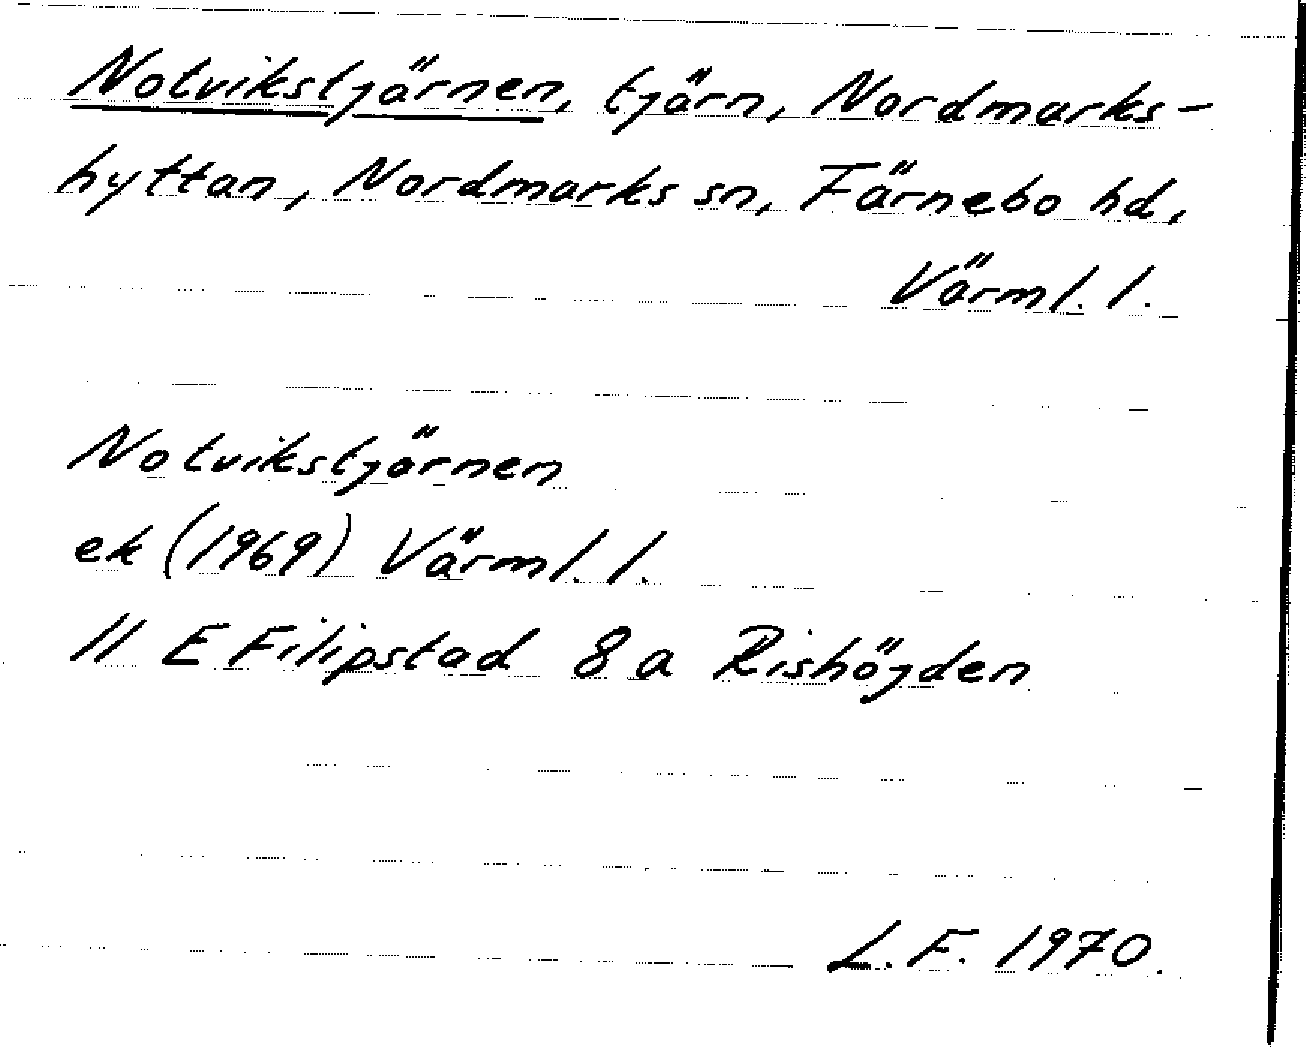 Notvikstjärnen, tjärn, Nordmarks-
hyttan, Nordmarks sn, Färnebo hd,
Värml. l.
Notvikstjärnen
ek (1969) Värml. l.
11 E Filipstad 8 a Rishöjden
L.F. 1970.